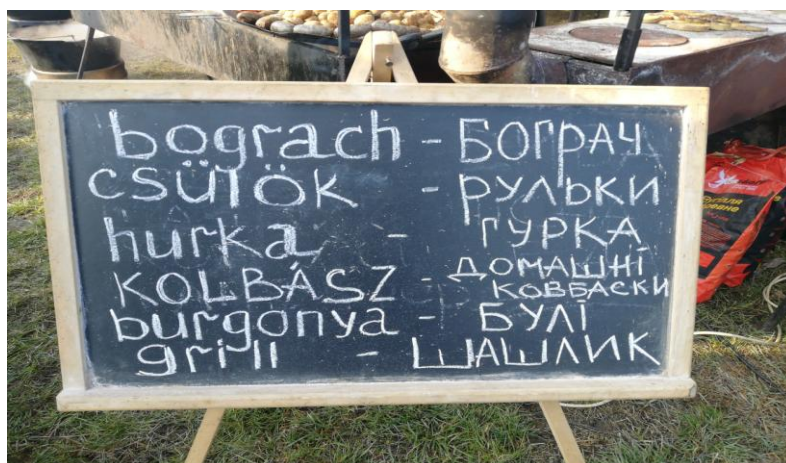 bograch - БОГРАЧ
csülök - РУЛЬКИ
hurka - ГУРКА
KOLBÁSZ - ДОМАШНІ
КОВБАСКИ
burgonya - БУЛІ
grill - ШАШЛИК